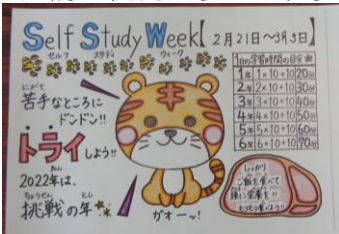 Self Study Week【2月21日～3月3日】
セルフ スタディ ウィーク
にがて
苦手なところに
ドンドン!!
トライしよう!!
2022年は、
ちょうせん とし
挑戦の年
ガオー～!
1日の学習時間の目安
1年 1×10+10 20分
2年 2×10+10 30分
3年 3×10+10 40分
4年 4×10+10 50分
5年 5×10+10 60分
6年 6×10+10 70分
しっかり
ご飯を食べて
頭に栄養を!!